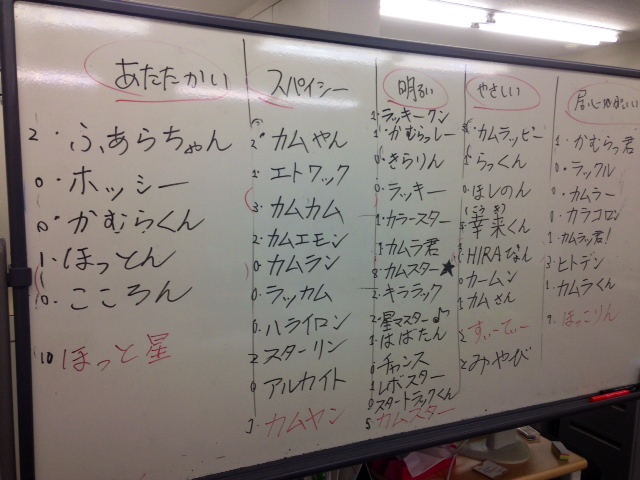 あたたかい
2・ふぁらちゃん
0・ホッシー
0・かむらくん
1・ほっとん
0・こころん
10 ほっと星
スパイシー
2・カムやん
1・エトワック
3・カムカム
2・カムエモン
0・カムラン
0・ラッカム
0・ハライロン
2・スターリン
0 アルカイト
カムヤン
明るい
2・ラッキークン
1・かむらっしー
0・きらりん
0・ラッキー
1・カラースター
1・カムラ君
8・カムスター★
2・キララック
2・星マスター♪
1・はばたん
0・チャンス
1 レボスター
0 スタートラックくん
5 カムスター
やさしい
・カムラッピー
1・らっくん
0・ほしのん
(こうき)
幸来くん
HIRAなん
0・カームン
1 カムさん
と すぃーてぃー
と みやび
1・かむらっ君
0・ラックル
0・カムラー
0・カラコロン
1・カムラッ君!
3・ヒトデン
1・カムラくん
9・ほっこりん